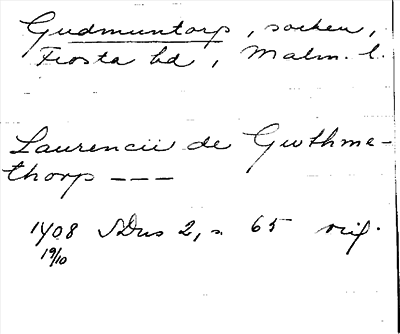 Gudmuntorp, socken,
Frosta hd, Malm. l.
Laurencii de Guthme-
thorp ---
1408 SDns 2, s. 65 orig.
19/10